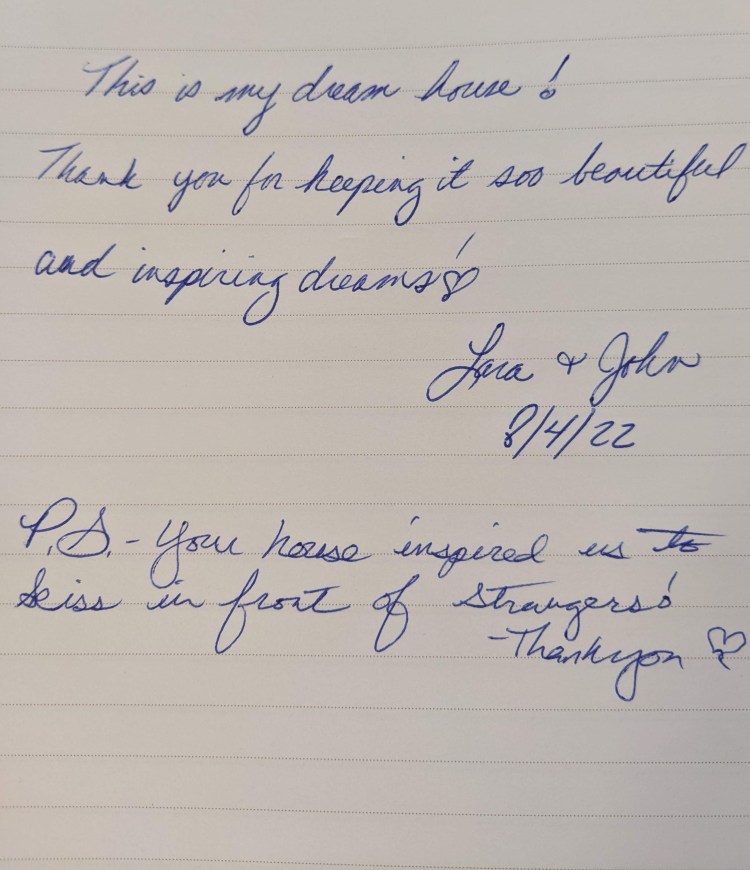 This is my dream house!
Thank you for keeping it soo beautiful
and inspiring dreams!♡
Lara & John
8/4/22
P.S. - Your house inspired us to
kiss in front of strangers!
- Thank you ♡